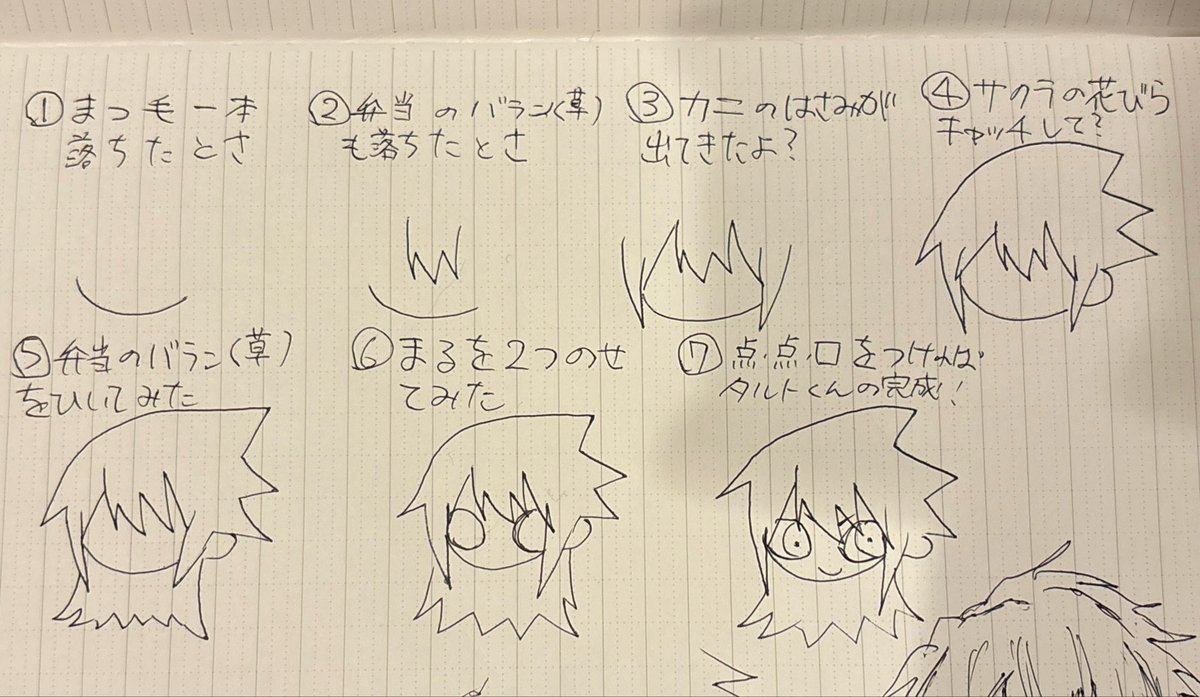 ①まつ毛一本
落ちたとさ
②弁当のバラン(草)
も落ちたとさ
③カニのはさみが
出てきたよ？
④サクラの花びら
キャッチして？
⑤弁当のバラン(草)
をひいてみた
⑥まるを2つのせ
てみた
⑦点、点、口をつければ
タルトくんの完成！